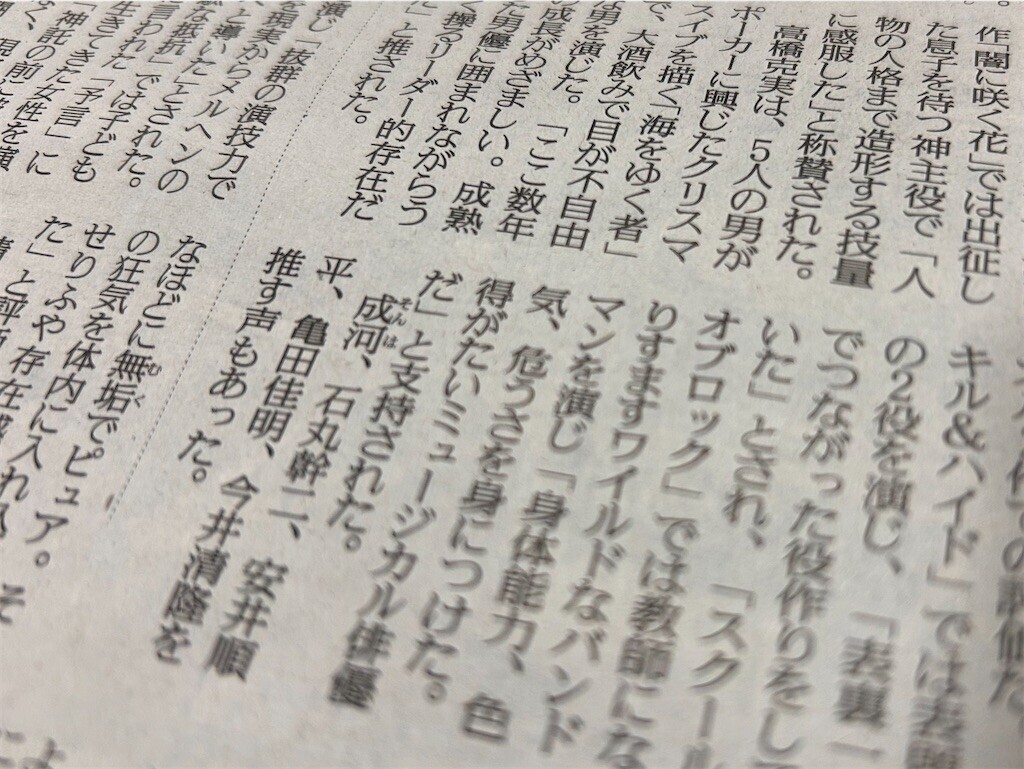 作「闇に咲く花」では出征し
た息子を待つ神主役で「人
物の人格まで造形する技量
に感服した」と称賛された。
高橋克実は、5人の男が
ポーカーに興じたクリスマ
スイブを描く「海をゆく者」
で、大酒飲みで目が不自由
な男を演じた。「ここ数年
の成長がめざましい。成熟
た男優に囲まれながらう
く操るリーダー的存在だ
に」と推された。
キル&ハイド」では
の2役を演じ、「表裏一
でつながった役作りをして
いた」とされ、「スクール
オブロック」では教師にな
りすますワイルドなバンド
マンを演じ「身体能力、色
気、危うさを身につけた。
得がたいミュージカル俳優
だ」と支持された。
成河、石丸幹二、安井順
平、亀田佳明、今井清隆を
推す声もあった。
演じ「抜群の演技力で
を現実からメルヘンの
と導いた」とされた。
な抵抗」では子ども
言われた「予言」に
なほどに無垢で。ピュア。
の狂気を体内に入れ
せりふや存在感
た」と評価